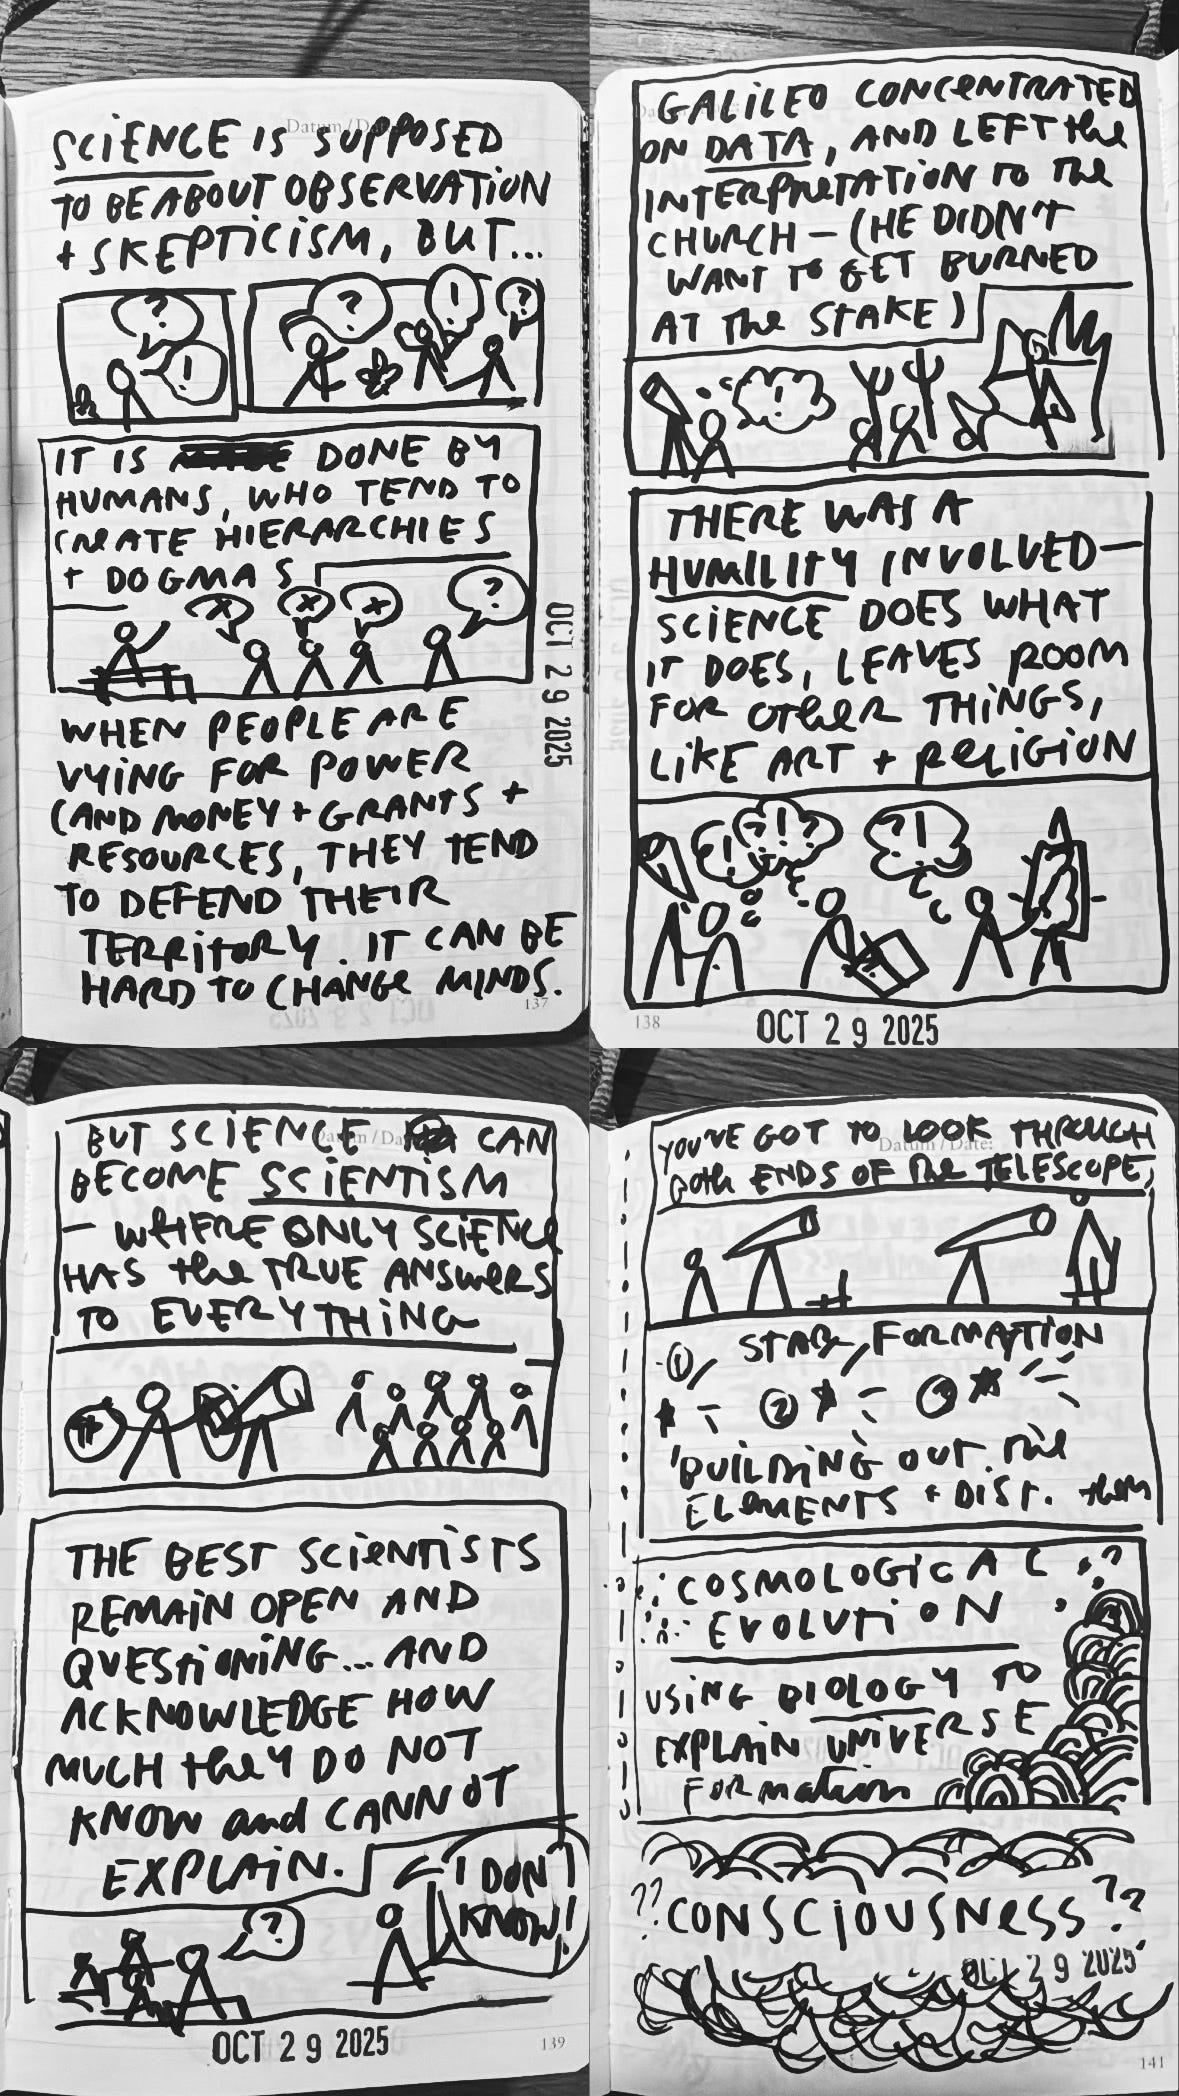 Datum / Date:
SCIENCE IS SUPPOSED
TO BE ABOUT OBSERVATION
+ SKEPTICISM, BUT...
?
!
?
!
?
IT IS DONE BY
HUMANS, WHO TEND TO
CREATE HIERARCHIES
+ DOGMAS
X
X
X
?
WHEN PEOPLE ARE
VYING FOR POWER
(AND MONEY + GRANTS +
RESOURCES, THEY TEND
TO DEFEND THEIR
TERRITORY. IT CAN BE
HARD TO CHANGE MINDS.
OCT 29 2025
137
GALILEO CONCENTRATED
ON DATA, AND LEFT the
INTERPRETATION TO THE
CHURCH — (HE DIDN'T
WANT TO GET BURNED
AT The STAKE)
!
THERE WAS A
HUMILITY INVOLVED—
SCIENCE DOES WHAT
IT DOES, LEAVES ROOM
FOR OTHER THINGS,
LIKE ART + RELIGION
!
?!?
?!
138
OCT 29 2025
Datum / Date:
BUT SCIENCE CAN
BECOME SCIENTISM
— WHERE ONLY SCIENCE
HAS the TRUE ANSWERS
TO EVERYTHING
THE BEST SCIENTISTS
REMAIN OPEN AND
QUESTIONING... AND
ACKNOWLEDGE HOW
MUCH they DO NOT
KNOW and CANNOT
EXPLAIN.
?
I DON'T
KNOW!
OCT 29 2025
139
Datum / Date:
YOU'VE GOT TO LOOK THROUGH
both ENDS OF the TELESCOPE,
① STAR FORMATION
② ③
BUILDING OUT the
ELEMENTS + DIST. them
COSMOLOGICAL ??
EVOLUTION
USING BIOLOGY TO
EXPLAIN UNIVERSE
FORMATION
?? CONSCIOUSNESS ??
OCT 29 2025
141